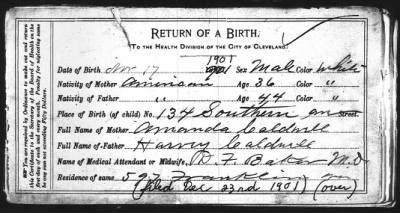 RETURN OF A BIRTH.
To the Health Division of the City of Cleveland.
1901
Date of Birth Nov 17 Sex Male Color White
Nativity of Mother American Age 36 Color "
Nativity of Father " Age 44 Color "
Place of Birth (of child) No. 134 Southern street.
Full Name of Mother Amanda Caldwell
Full Name of Father Harvey Caldwell
Name of Medical Attendant or Midwife, D. F. Baker M.D.
Residence of same 597 Franklin
(filed Dec 23rd 1901) (over)
You are required by Ordinance to make out and return
this Certificate to the Secretary of the Board of Health on the
first day of each and every month. Penalty for neglecting same
may be any sum not exceeding Fifty Dollars.